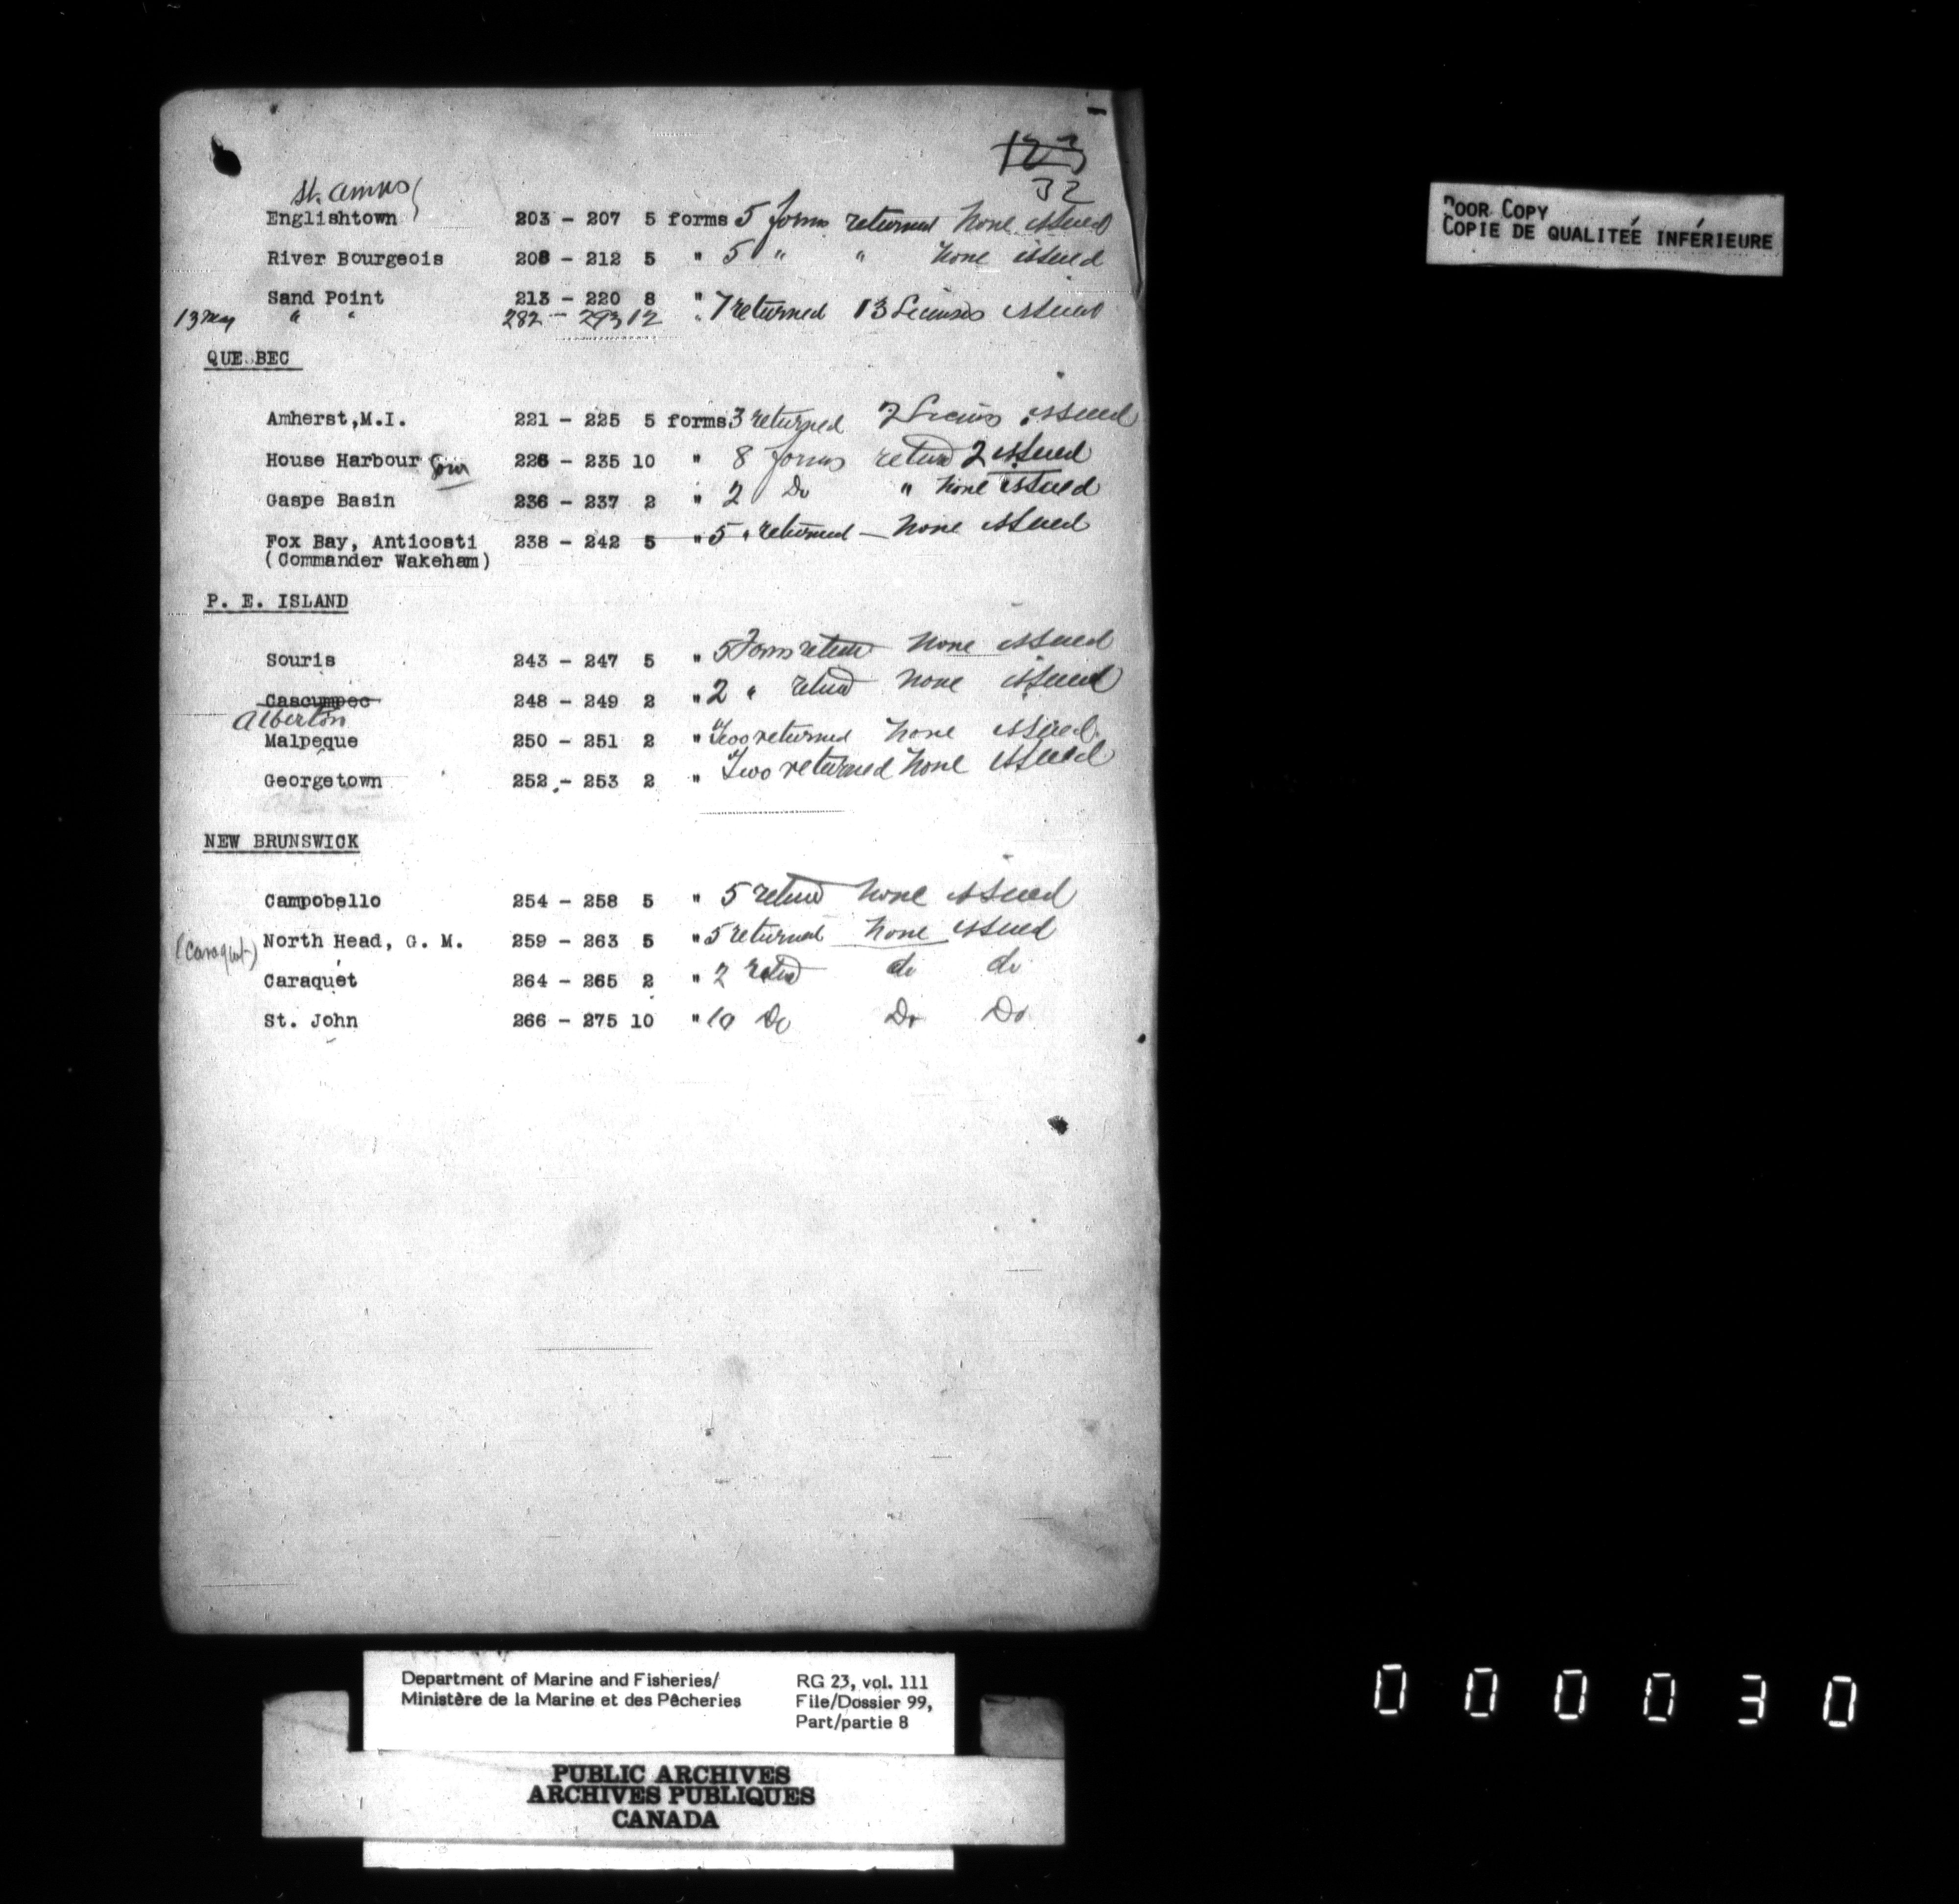 123
32
St. Anns
Englishtown 203 - 207 5 forms 5 forms returned None issued
River Bourgeois 208 - 212 5 " 5 " " None issued
Sand Point 213 - 220 8 "
13 May " " 282 - 293 12 " 7 returned 13 Licenses issued
QUEBEC
Amherst,M.I. 221 - 225 5 forms 3 returned 2 Licens issued
House Harbour 226 - 235 10 " 8 forms retund 2 issued
Gaspe Basin 236 - 237 2 " 2 Do " None issued
Fox Bay, Anticosti 238 - 242 5 " 5 " returned — None issued
(Commander Wakeham)
P. E. ISLAND
Souris 243 - 247 5 " 5 Forms return None issued
Cascumpec 248 - 249 2 " 2 " retund None issued
Alberton
Malpeque 250 - 251 2 " Two returned None issued.
Georgetown 252 - 253 2 " Two returned None issued
NEW BRUNSWICK
Campobello 254 - 258 5 " 5 retund None issued
North Head, G. M. 259 - 263 5 " 5 returned None issued
(Caraquet)
Caraquet 264 - 265 2 " 2 retud do do
St. John 266 - 275 10 " 10 Do Do Do
POOR COPY
COPIE DE QUALITEÉ INFÉRIEURE
Department of Marine and Fisheries/ RG 23, vol. 111
Ministère de la Marine et des Pêcheries File/Dossier 99,
Part/partie 8
PUBLIC ARCHIVES
ARCHIVES PUBLIQUES
CANADA
000030